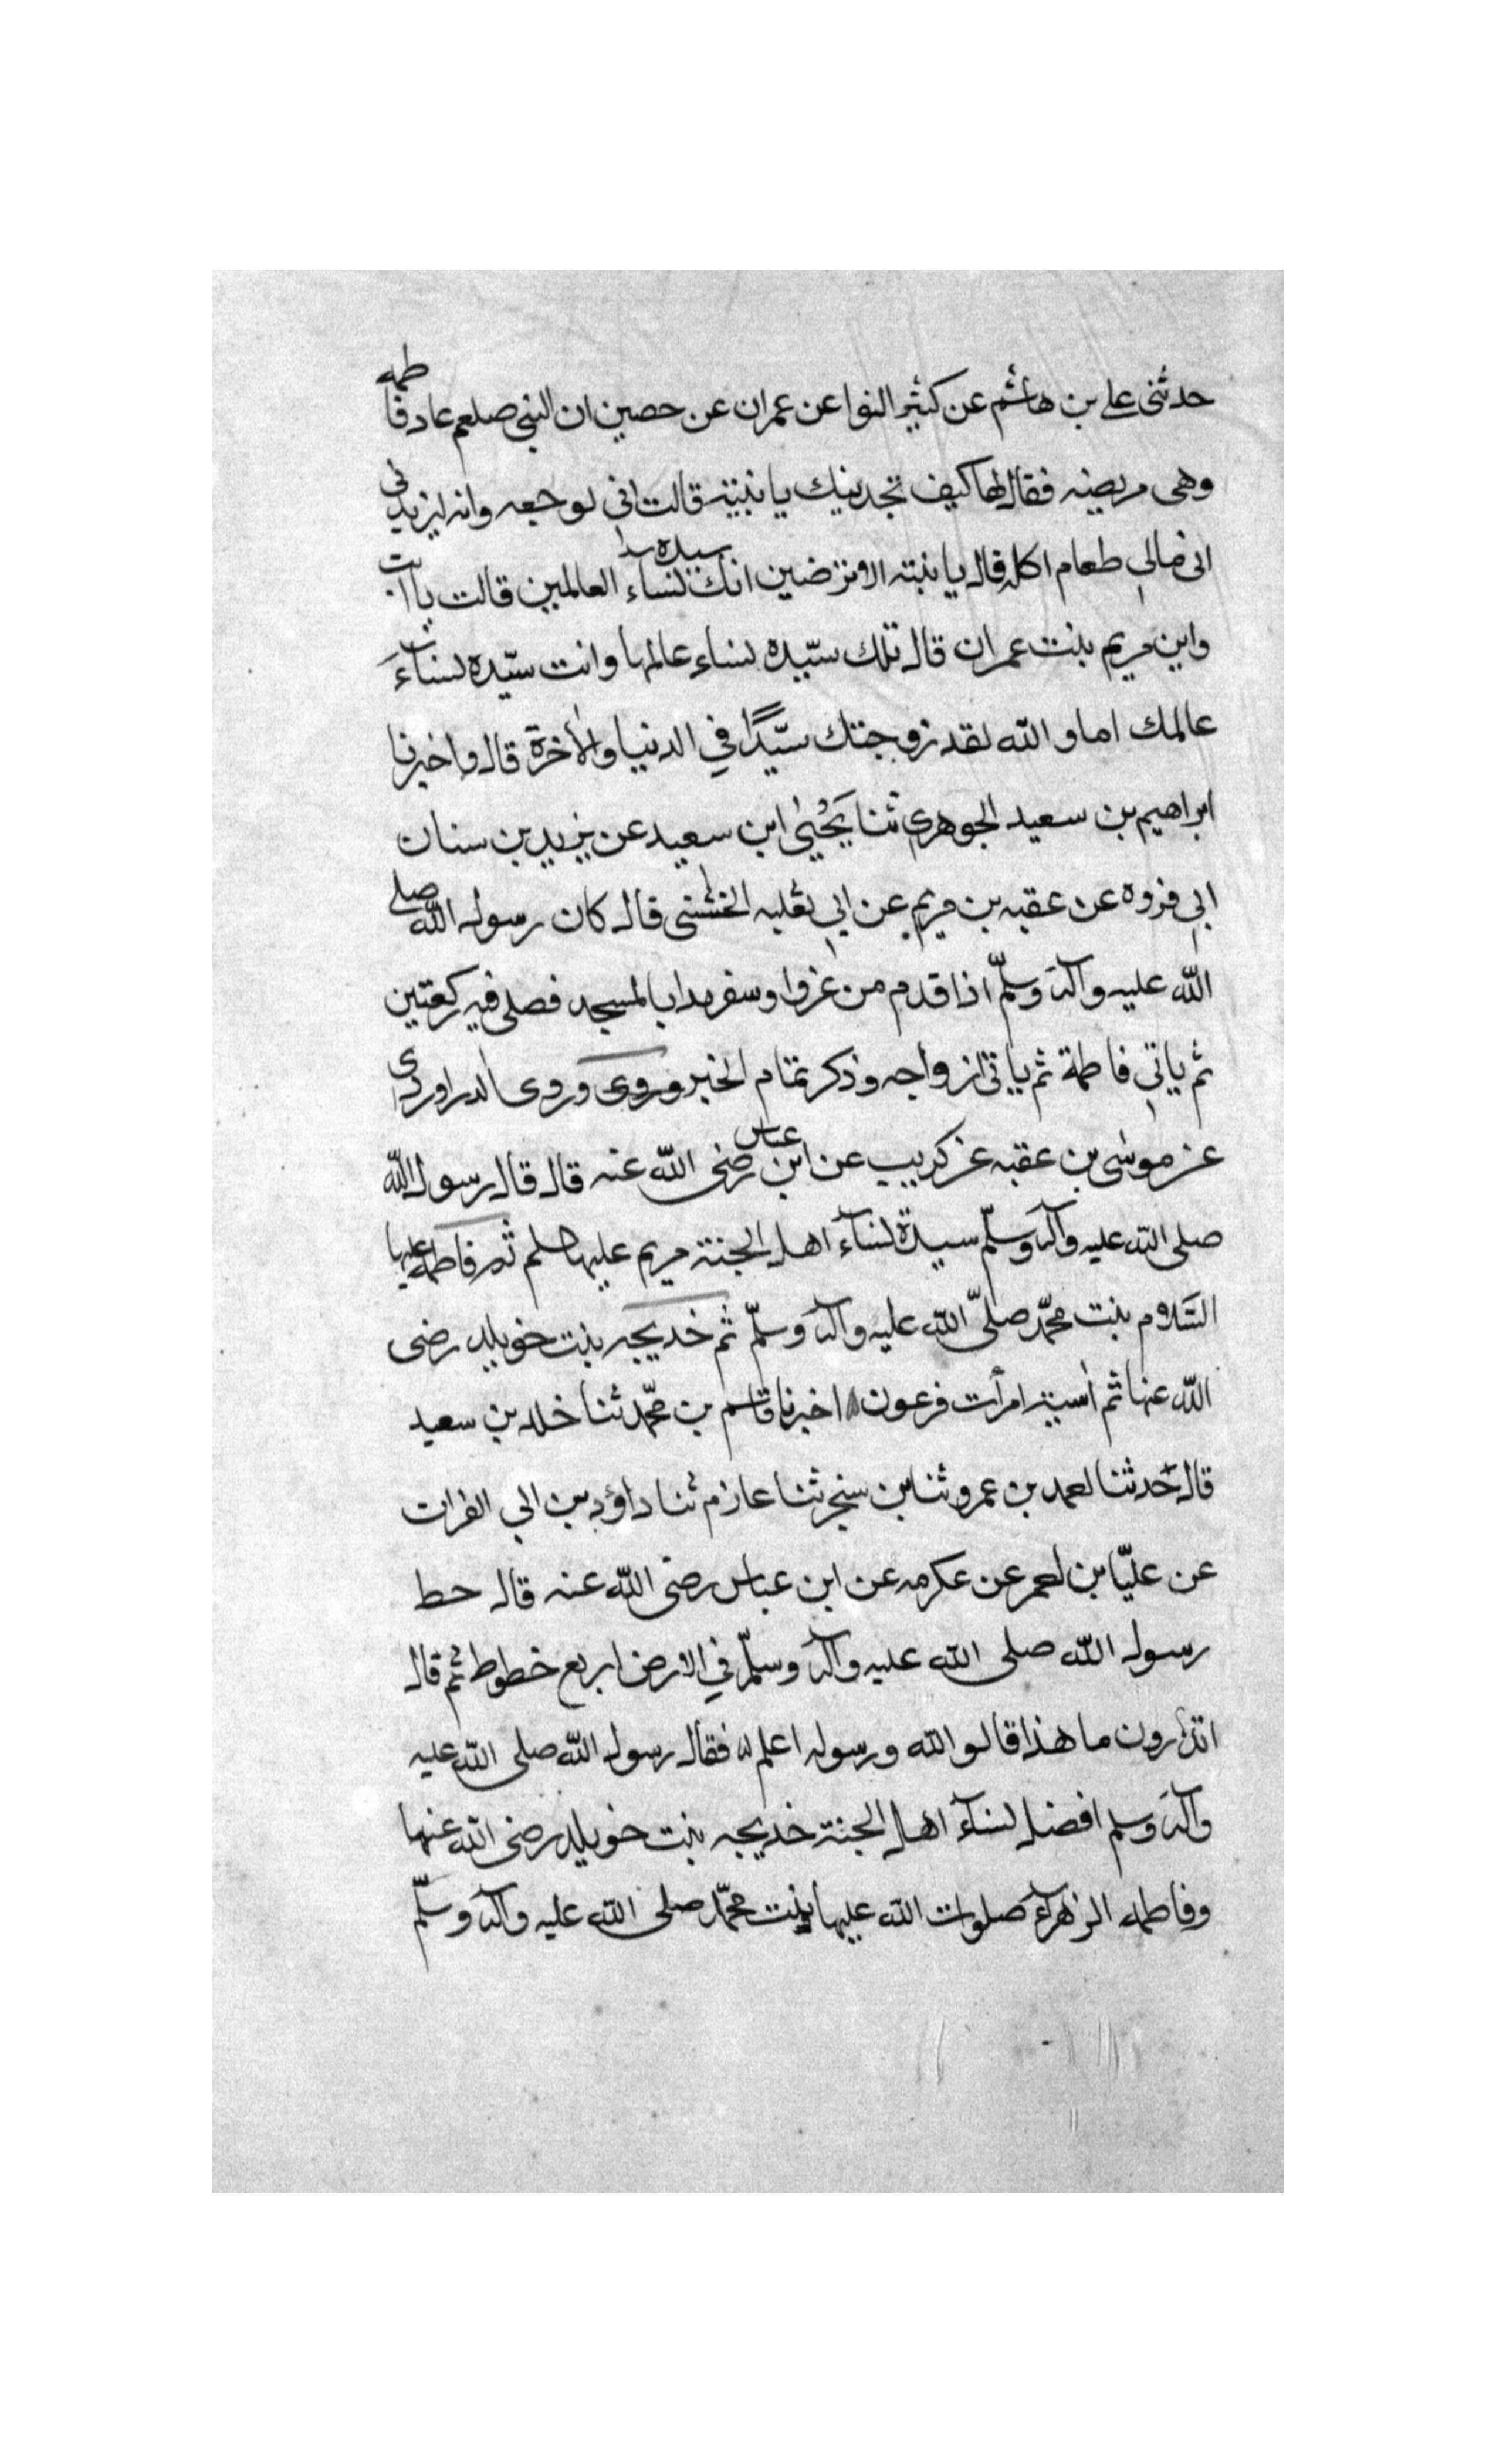 حدثنى على بن هاشم عن كثير النوا عن عمران عن حصين ان النبى صلعم عاد فاطمه
وهى مريضه فقال لها كيف تجدينك يا بنية قالت انى لوجعه وانه ليزيدنى
انى مالى طعام اكله قال يا بنته الا ترضين انك سيده نساء العالمين قالت يا ابت
واين مريم بنت عمران قال تلك سيّده نساء عالمها وانت سيّده نساء
عالمك اما والله لقد زوجتك سيّدًا في الدنيا والأخرة قال واخبرنا
ابراهيم بن سعيد الجوهرى ثنا يَحْيىٰ ابن سعيد عن يزيد بن سنان
ابى فروه عن عقبه بن مريم عن ابى ثعلبه الخشنى قال كان رسول الله صلى
الله عليه وآله وسلّم اذا قدم من غزو او سفر بدا بالمسجد فصلى فيه ركعتين
ثم ياتى فاطمة ثم ياتى ازواجه وذكر تمام الخبر وروى وروى الدراوردى
عن موسٰى بن عقبه عن كريب عن ابن عباس رضى الله عنه قال قال رسول الله
صلى الله عليه وآله وسلّم سيدة نسآء اهل الجنة مريم عليها ثم فاطمه عليها
السّلام بنت محمّد صلّى الله عليه وآله وسلّم ثم خديجه بنت خويلد رضى
الله عنها ثم اٰسية امرأت فرعون اخبرنا قاسم بن محمّد ثنا خلد بن سعيد
قال حدثنا بن عمرو ثنا بن سنجر ثنا عازم ثنا داؤد بن ابى الفرات
عن عليّا بن عن عكرمه عن ابن عباس رضى الله عنه قال حط
رسول الله صلى الله عليه وآله وسلّم في الارض اربع خطوط ثم قال
اتدرون ما هذا قالو الله ورسوله اعلم فقال رسول الله صلى الله عليه
وآله وسلم افضل نسآء اهل الجنة خديجه بنت خويلد رضى الله عنها
وفاطمه الزهرآء صلوات الله عليها بنت محمّد صلى الله عليه وآله وسلّم